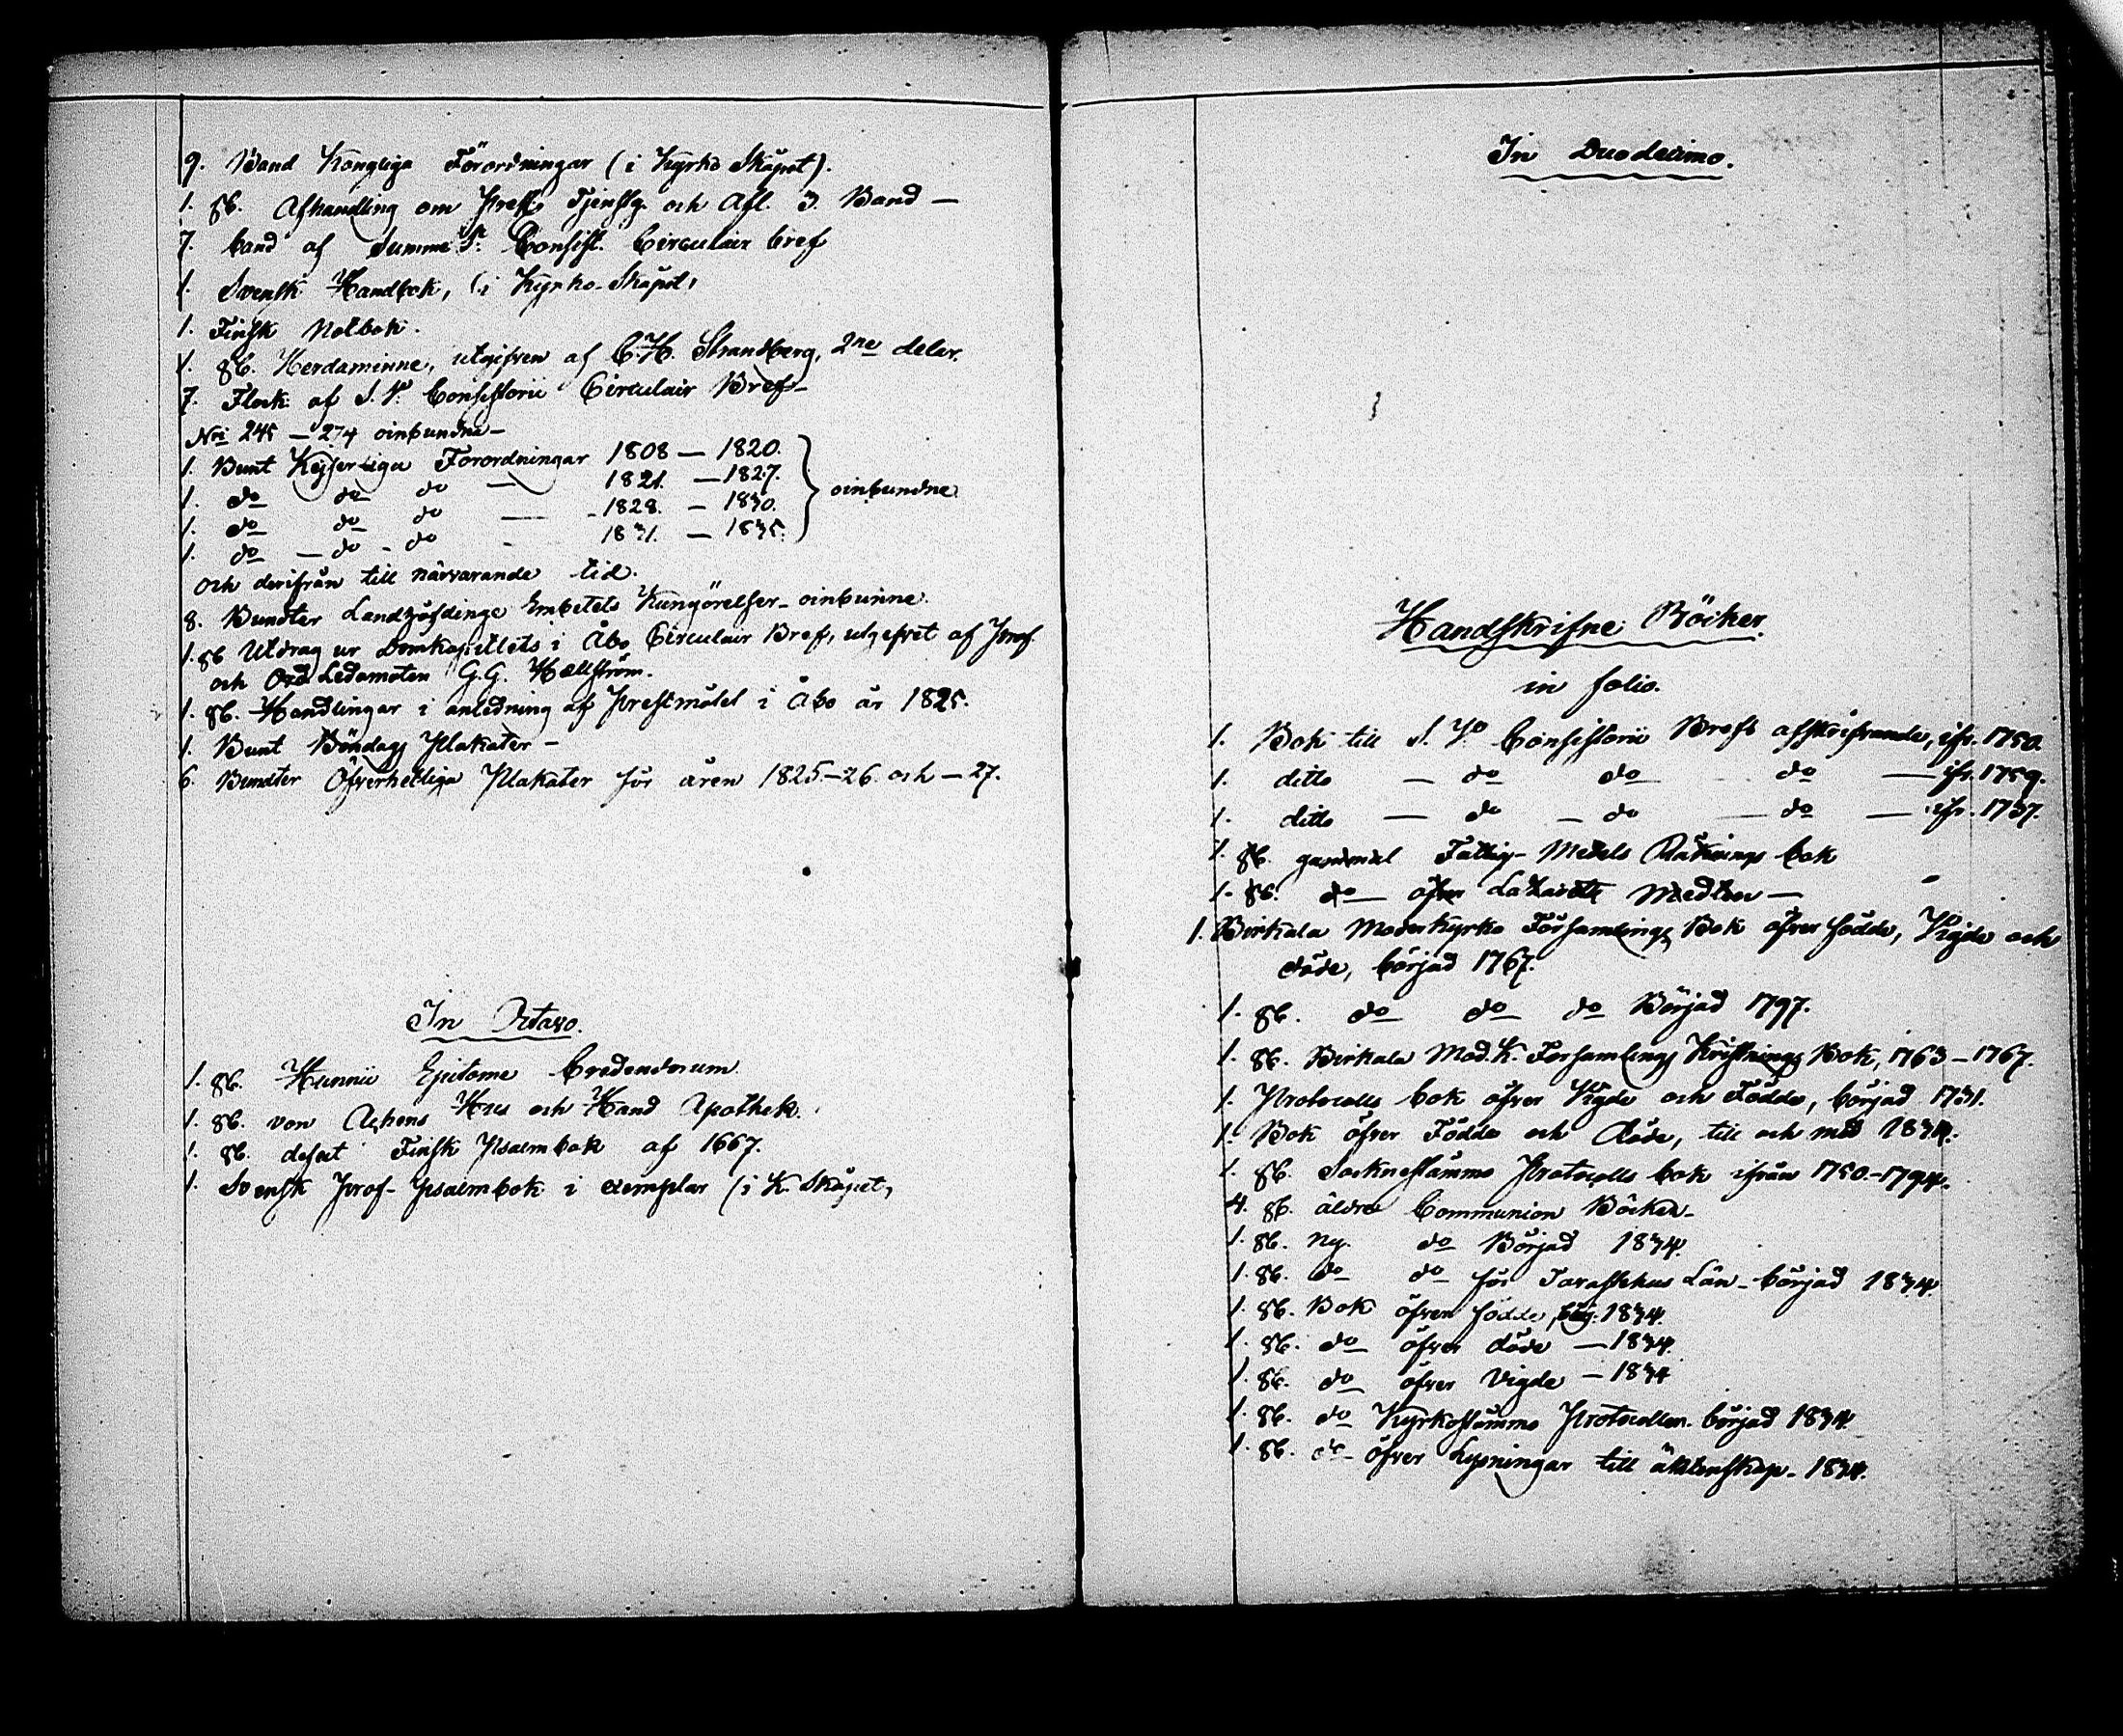 9. Band Kongliga Förordningar (i Kyrko Skåpet).
1. st. Afhandling om Prest Tjenstg. och Afl. 3. Band —
7. band af Summe V. Consist. Circulair bref
1. Svensk Handbok, (i Kyrko-Skåpet,
1. Finsk Notbok.
1. st. Herdaminne, utgifven af C.H. Strandberg, 2ne delar.
7. Flock af S. V. Consistorii Circulair Bref—
Nri 245 — 274 oinbundna—
1. Bunt Kejserliga Förordningar 1808 — 1820.
1. do do do — 1821. — 1827.
1. do do do — 1828. — 1830. oinbundne
1. do — do - do - 1831. — 1835.
och derifrån till närvarande tid.
8. Bundter Landshöfdinge Embetets Kungörelser— oinbunne.
1. st Utdrag ur Domkapitlets i Åbo Circulair Bref, utgefvet af Prof.
och Ord. Ledamoten G.G. Hällström.
1. st. Handlingar i anledning af Prestmötet i Åbo år 1825.
1. Bunt Böndags Plakater —
6. Bundter Öfverhetliga Plakater för åren 1825—26. och — 27.
In Octavo.
1. st. Hunnii Epitome Credendorum
1. st. von Aken's Hus och Hand Apothek.
1. st. defect Finsk Psalmbok af 1667.
1. Svensk Prof- Psalmbok i exemplar (i K. Skåpet,
In Duodecimo.
Handskrifne Böcker.
in folio.
1. Bok till S. V. Consistorii Brefs afskrifvande, ifr. 1750.
1. ditto — do do do — ifr. 1759.
1. ditto — do — do — do — ifr. 1737.
1. st. gammal Fattig- Medels Räknings bok
1. st. do öfver Lazaretts Medlen —
1. Birkala Moderkyrko Församlings Bok öfver födde, Vigde och
döde, börjad 1767.
1. st. do do do Börjad 1797.
1. st. Birkala Mod. K. Forsamlings Kristnings Bok, 1763 — 1767.
1. Protocolls bok öfver Vigde och Födde, börjad 1731.
1. Bok öfver Födde och Döde, till och med 1834.
1. st. Socknestämmo Protocolls bok ifrån 1750.-1794.
4. st. äldre Communion Böcker—
1. st. ny. do Börjad 1834.
1. st. do do för Tavastehus Län— börjad 1834.
1. st. Bok öfver födde, börj. 1834.
1. st. do öfver döde — 1834.
1. st. do öfver Vigde — 1834
1. st. do Kyrkostämmo Protocoller. börjad 1834.
1. st. do öfver Lysningar till äktenskap— 1834.